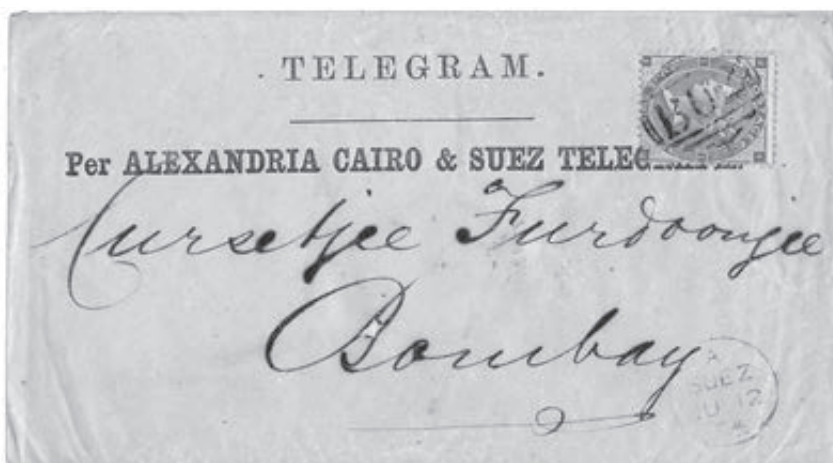 . TELEGRAM.
Per ALEXANDRIA CAIRO & SUEZ
Cursetjee Furdoonjee
Bombay
SUEZ